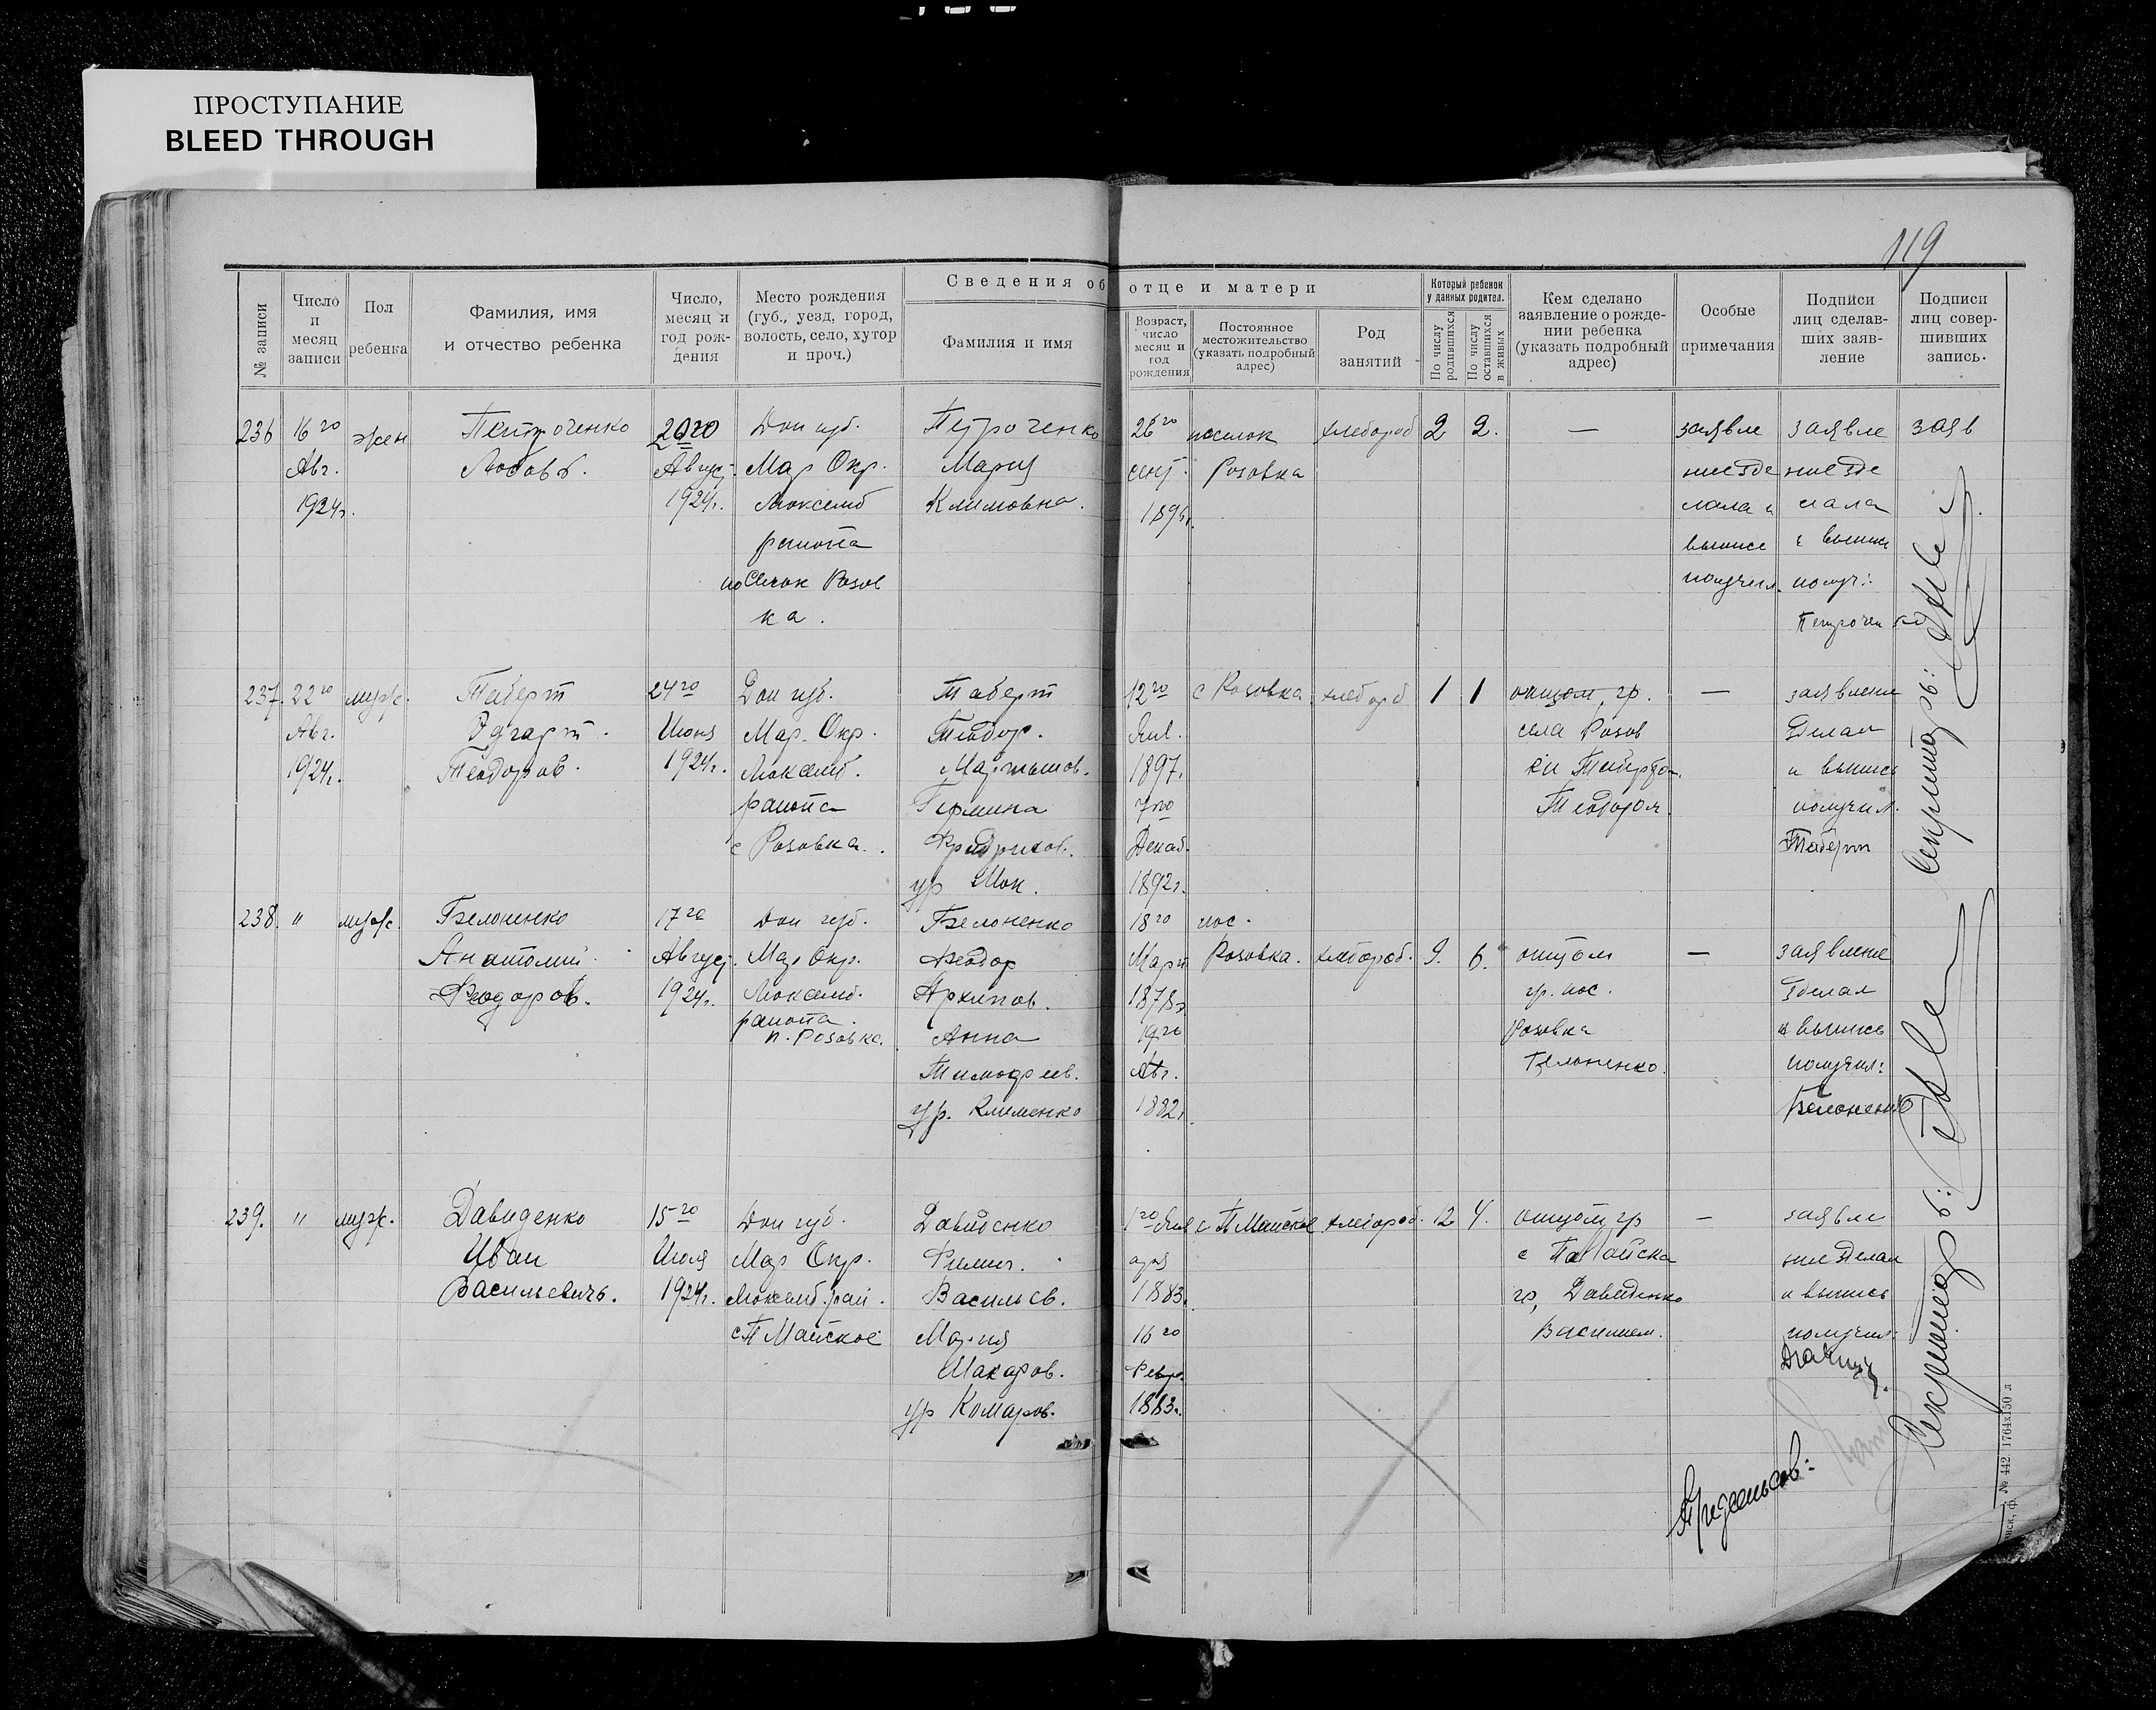 ПРОСТУПАНИЕ
BLEED THROUGH
119
Сведения об отце и матери
№ записи
Число и месяц записи
Пол ребенка
Фамилия, имя и отчество ребенка
Число, месяц и год рождения
Место рождения (губ., уезд, город, волость, село, хутор и проч.)
Фамилия и имя
Возраст, число месяц и год рождения
Постоянное местожительство (указать подробный адрес)
Род занятий
Который ребенок у данных родител.
По числу родившихся
По числу оставшихся в живых
Кем сделано заявление о рождении ребенка (указать подробный адрес)
Особые примечания
Подписи лиц сделавших заявление
Подписи лиц совершивших запись.
236
16го
Авг.
1924г.
жен
Петроченко
Любовь.
20го
Август.
1924г.
Дон губ.
Мар Окр.
Люксемб
района
поселок Розов
ка.
Петроченко
Мария
Климовна.
26го
сент.
1896г.
поселок
Розовка
хлебороб
2
2.
—
заявле
ние зде
лала и
выписе
получил.
заявле
ние зде
лала
и выпис
получ:
Петроченко
заяв
237.
22го
Авг.
1924г.
муж.
Таберт
Эдгарт.
Теодоров.
24го
Июня
1924г.
Дон губ.
Мар. Окр.
Люксемб.
района
с Розовка.
Таберт
Теодор.
Мартынов.
Гермина
Фридрихов.
ур Шок.
12го
Янв.
1897г.
7го
Декаб.
1892г.
с Розовка
хлебороб
1
1
отцом, гр.
села Розов
ки Табертом.
Теодором.
—
заявление
Зделал
и выпись
получил.
Таберт
238.
"
муж.
Белоненко
Анатолий.
Феодоров.
17го
Август.
1924г.
Дон губ.
Мар Окр.
Люксемб.
района.
п. Розовка.
Белоненко
Феодор
Архипов.
Анна
Тимофеев.
ур. Клименко
18го
Март
1878г
19го
Авг.
1882г.
пос.
Розовка.
хлебороб.
9.
6.
отцом
гр. пос.
Розовка
Белоненко.
—
заявление
Зделал
и выпись
получил:
Белоненко
239.
"
муж.
Давиденко
Иван
Васильевичь.
15го
Июля
1924г.
Дон губ.
Мар Окр.
Люксемб. рай.
с П Майское
Давиденко
Васильев.
Мария
Макаров.
ур Комаров.
1го Янв
аря
1883г.
16го
Февр.
1883г.
с П Майское
хлебороб.
12
4.
отцом гр
с П Майска
гр, Давиденко
Василием.
—
заявле
ние Зделал
и выпись
получил:
Секретарь:
Секретарь:
№ 442. 1764х150 л